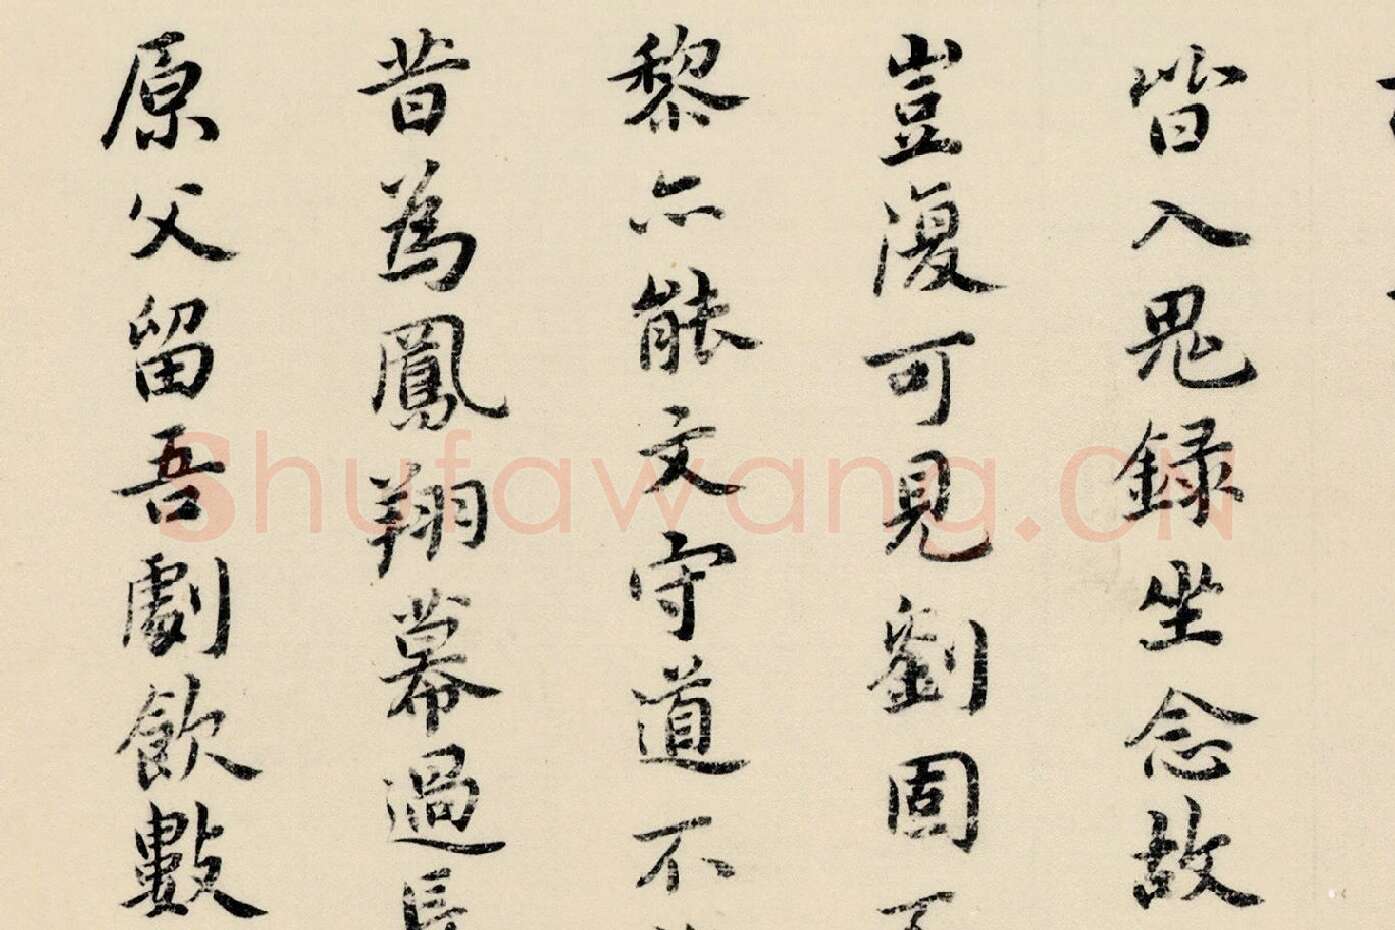 皆入鬼録坐念故
豈復可見劉固不
黎亦能文守道不
昔為鳳翔幕過長
原父留吾劇飲數
Shufawang.CN